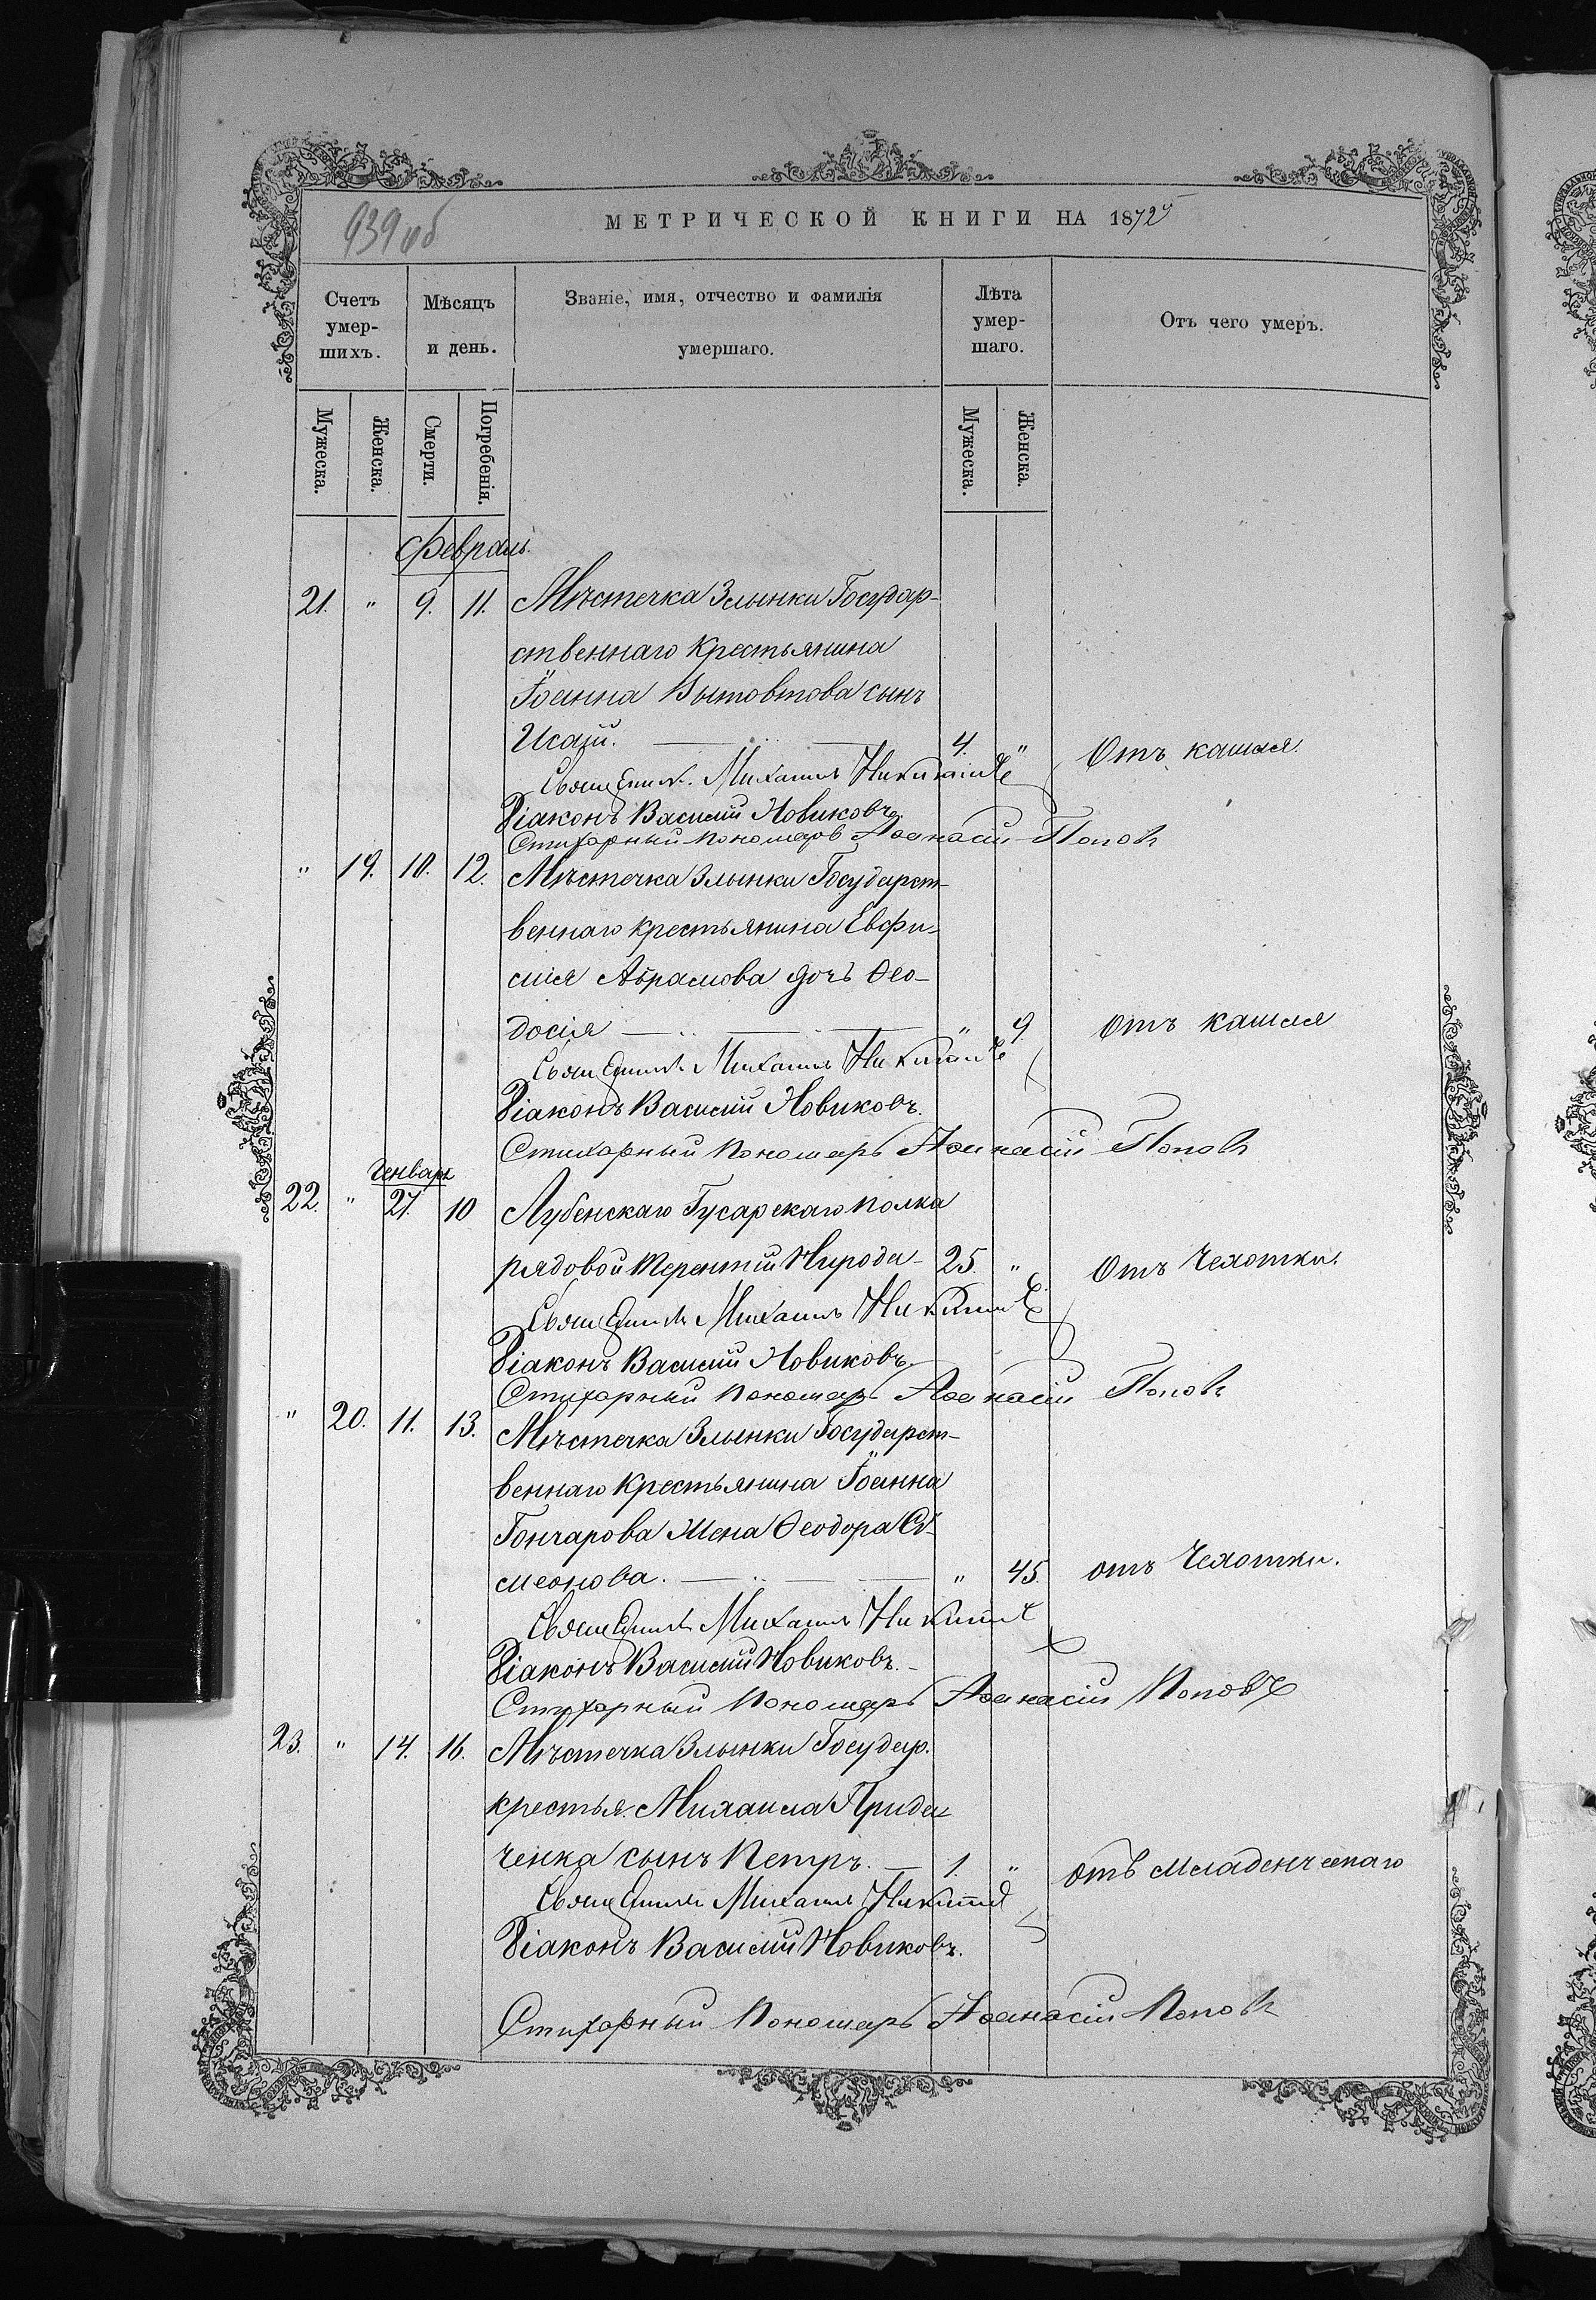 939 об
МЕТРИЧЕСКОЙ КНИГИ НА 1872й
Счетъ умер-шихъ.
Мѣсяцъ и день.
Званіе, имя, отчество и фамилія умершаго.
Лѣта умер-шаго.
Отъ чего умеръ.
Мужеска. Женска. Смерти. Погребенія. Мужеска. Женска.
Февраль.
21. " 9. 11. Мѣстечка Злынки Государ-
ственнаго крестьянина
Іоанна Вытовтова сынъ
Исаій. 4. " Отъ кашля.
Священник. Михаилъ
Діаконъ Василій Новиковъ.
Стихарный пономаръ Аѳанасій Поповъ
" 19. 10. 12. Мѣстечка Злынки Государст-
веннаго крестьянина Евфи-
мія Абрамова дочь Ѳео-
досія " 9. отъ кашля
Священникъ Михаилъ
Діаконъ Василій Новиковъ.
Стихарный пономарь Аѳанасій Поповъ
Генварь
22. " 27. 10 Лубенскаго Гусарскаго полка
рядовой Терентій Нирода 25. " Отъ Чехотки.
Священникъ Михаилъ
Діаконъ Василій Новиковъ.
Стихарный пономарь Аѳанасій Поповъ
" 20. 11. 13. Мѣстечка Злынки Государст-
веннаго крестьянина Іоанна
Гончарова жена Ѳеодора Си-
меонова. " 45. отъ Чехотки.
Священникъ Михаилъ
Діаконъ Василій Новиковъ.
Стихарный пономарь Аѳанасій Поповъ
23. " 14. 16. Мѣстечка Злынки Государ.
крестья. Михаила Приде-
ченка сынъ Петръ. 1. " отъ младенческаго
Священникъ Михаилъ
Діаконъ Василій Новиковъ.
Стихарный пономарь Аѳанасій Поповъ